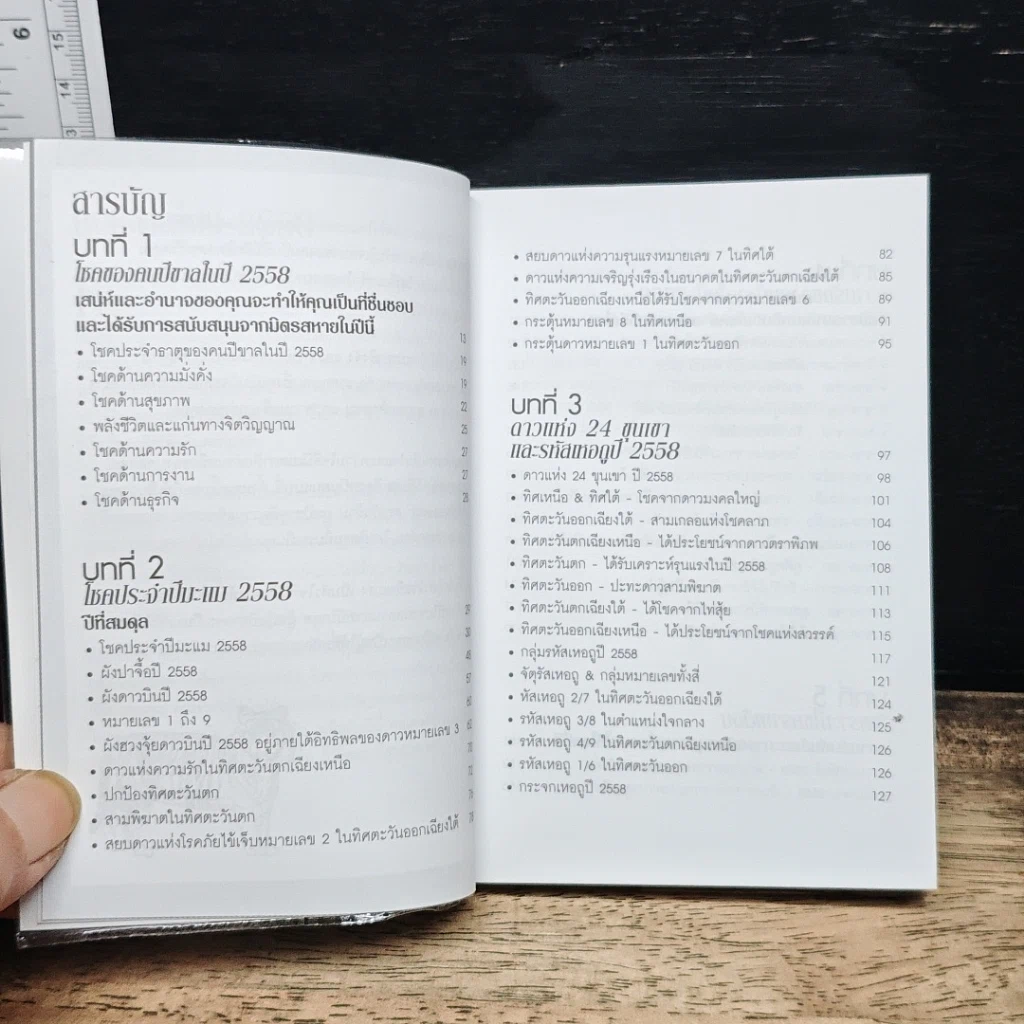 6
15
14
3
สารบัญ
บทที่ 1
โชคของคนปีขาลในปี 2558
เสน่ห์และอำนาจของคุณจะทำให้คุณเป็นที่ชื่นชอบ
และได้รับการสนับสนุนจากมิตรสหายในปีนี้ 13
• โชคประจำธาตุของคนปีขาลในปี 2558 19
• โชคด้านความมั่งคั่ง 19
• โชคด้านสุขภาพ 22
• พลังชีวิตและแก่นทางจิตวิญญาณ 25
• โชคด้านความรัก 27
• โชคด้านการงาน 27
• โชคด้านธุรกิจ 28
บทที่ 2
โชคประจำปีมะแม 2558
ปีที่สมดุล
• โชคประจำปีมะแม 2558
• ผังปาจื้อปี 2558
• ผังดาวบินปี 2558
• หมายเลข 1 ถึง 9
• ผังฮวงจุ้ยดาวบินปี 2558 อยู่ภายใต้อิทธิพลของดาวหมายเลข 3
• ดาวแห่งความรักในทิศตะวันตกเฉียงเหนือ
• ปกป้องทิศตะวันตก
• สามพิฆาตในทิศตะวันตก
• สยบดาวแห่งโรคภัยไข้เจ็บหมายเลข 2 ในทิศตะวันออกเฉียงใต้
• สยบดาวแห่งความรุนแรงหมายเลข 7 ในทิศใต้ 82
• ดาวแห่งความเจริญรุ่งเรืองในอนาคตในทิศตะวันตกเฉียงใต้ 85
• ทิศตะวันออกเฉียงเหนือได้รับโชคจากดาวหมายเลข 6 89
• กระตุ้นหมายเลข 8 ในทิศเหนือ 91
• กระตุ้นดาวหมายเลข 1 ในทิศตะวันออก 95
บทที่ 3
ดาวแห่ง 24 ขุนเขา
และรหัสเหอถูปี 2558 97
• ดาวแห่ง 24 ขุนเขา ปี 2558 98
• ทิศเหนือ & ทิศใต้ - โชคจากดาวมงคลใหญ่ 101
• ทิศตะวันออกเฉียงใต้ - สามเกลอแห่งโชคลาภ 104
• ทิศตะวันตกเฉียงเหนือ - ได้ประโยชน์จากดาวตราพิภพ 106
• ทิศตะวันตก - ได้รับเคราะห์รุนแรงในปี 2558 108
• ทิศตะวันออก - ปะทะดาวสามพิฆาต 111
• ทิศตะวันตกเฉียงใต้ - ได้โชคจากไท่สุ้ย 113
• ทิศตะวันออกเฉียงเหนือ - ได้ประโยชน์จากโชคแห่งสวรรค์ 115
• กลุ่มรหัสเหอถูปี 2558 117
• จัตุรัสเหอถู & กลุ่มหมายเลขทั้งสี่ 121
• หัสเหอถู 2/7 ในทิศตะวันออกเฉียงใต้ 124
• รหัสเหอถู 3/8 ในตำแหน่งใจกลาง 125
• รหัสเหอถู 4/9 ในทิศตะวันตกเฉียงเหนือ 126
• รหัสเหอถู 1/6 ในทิศตะวันออก 126
• กระจกเหอถูปี 2558 127